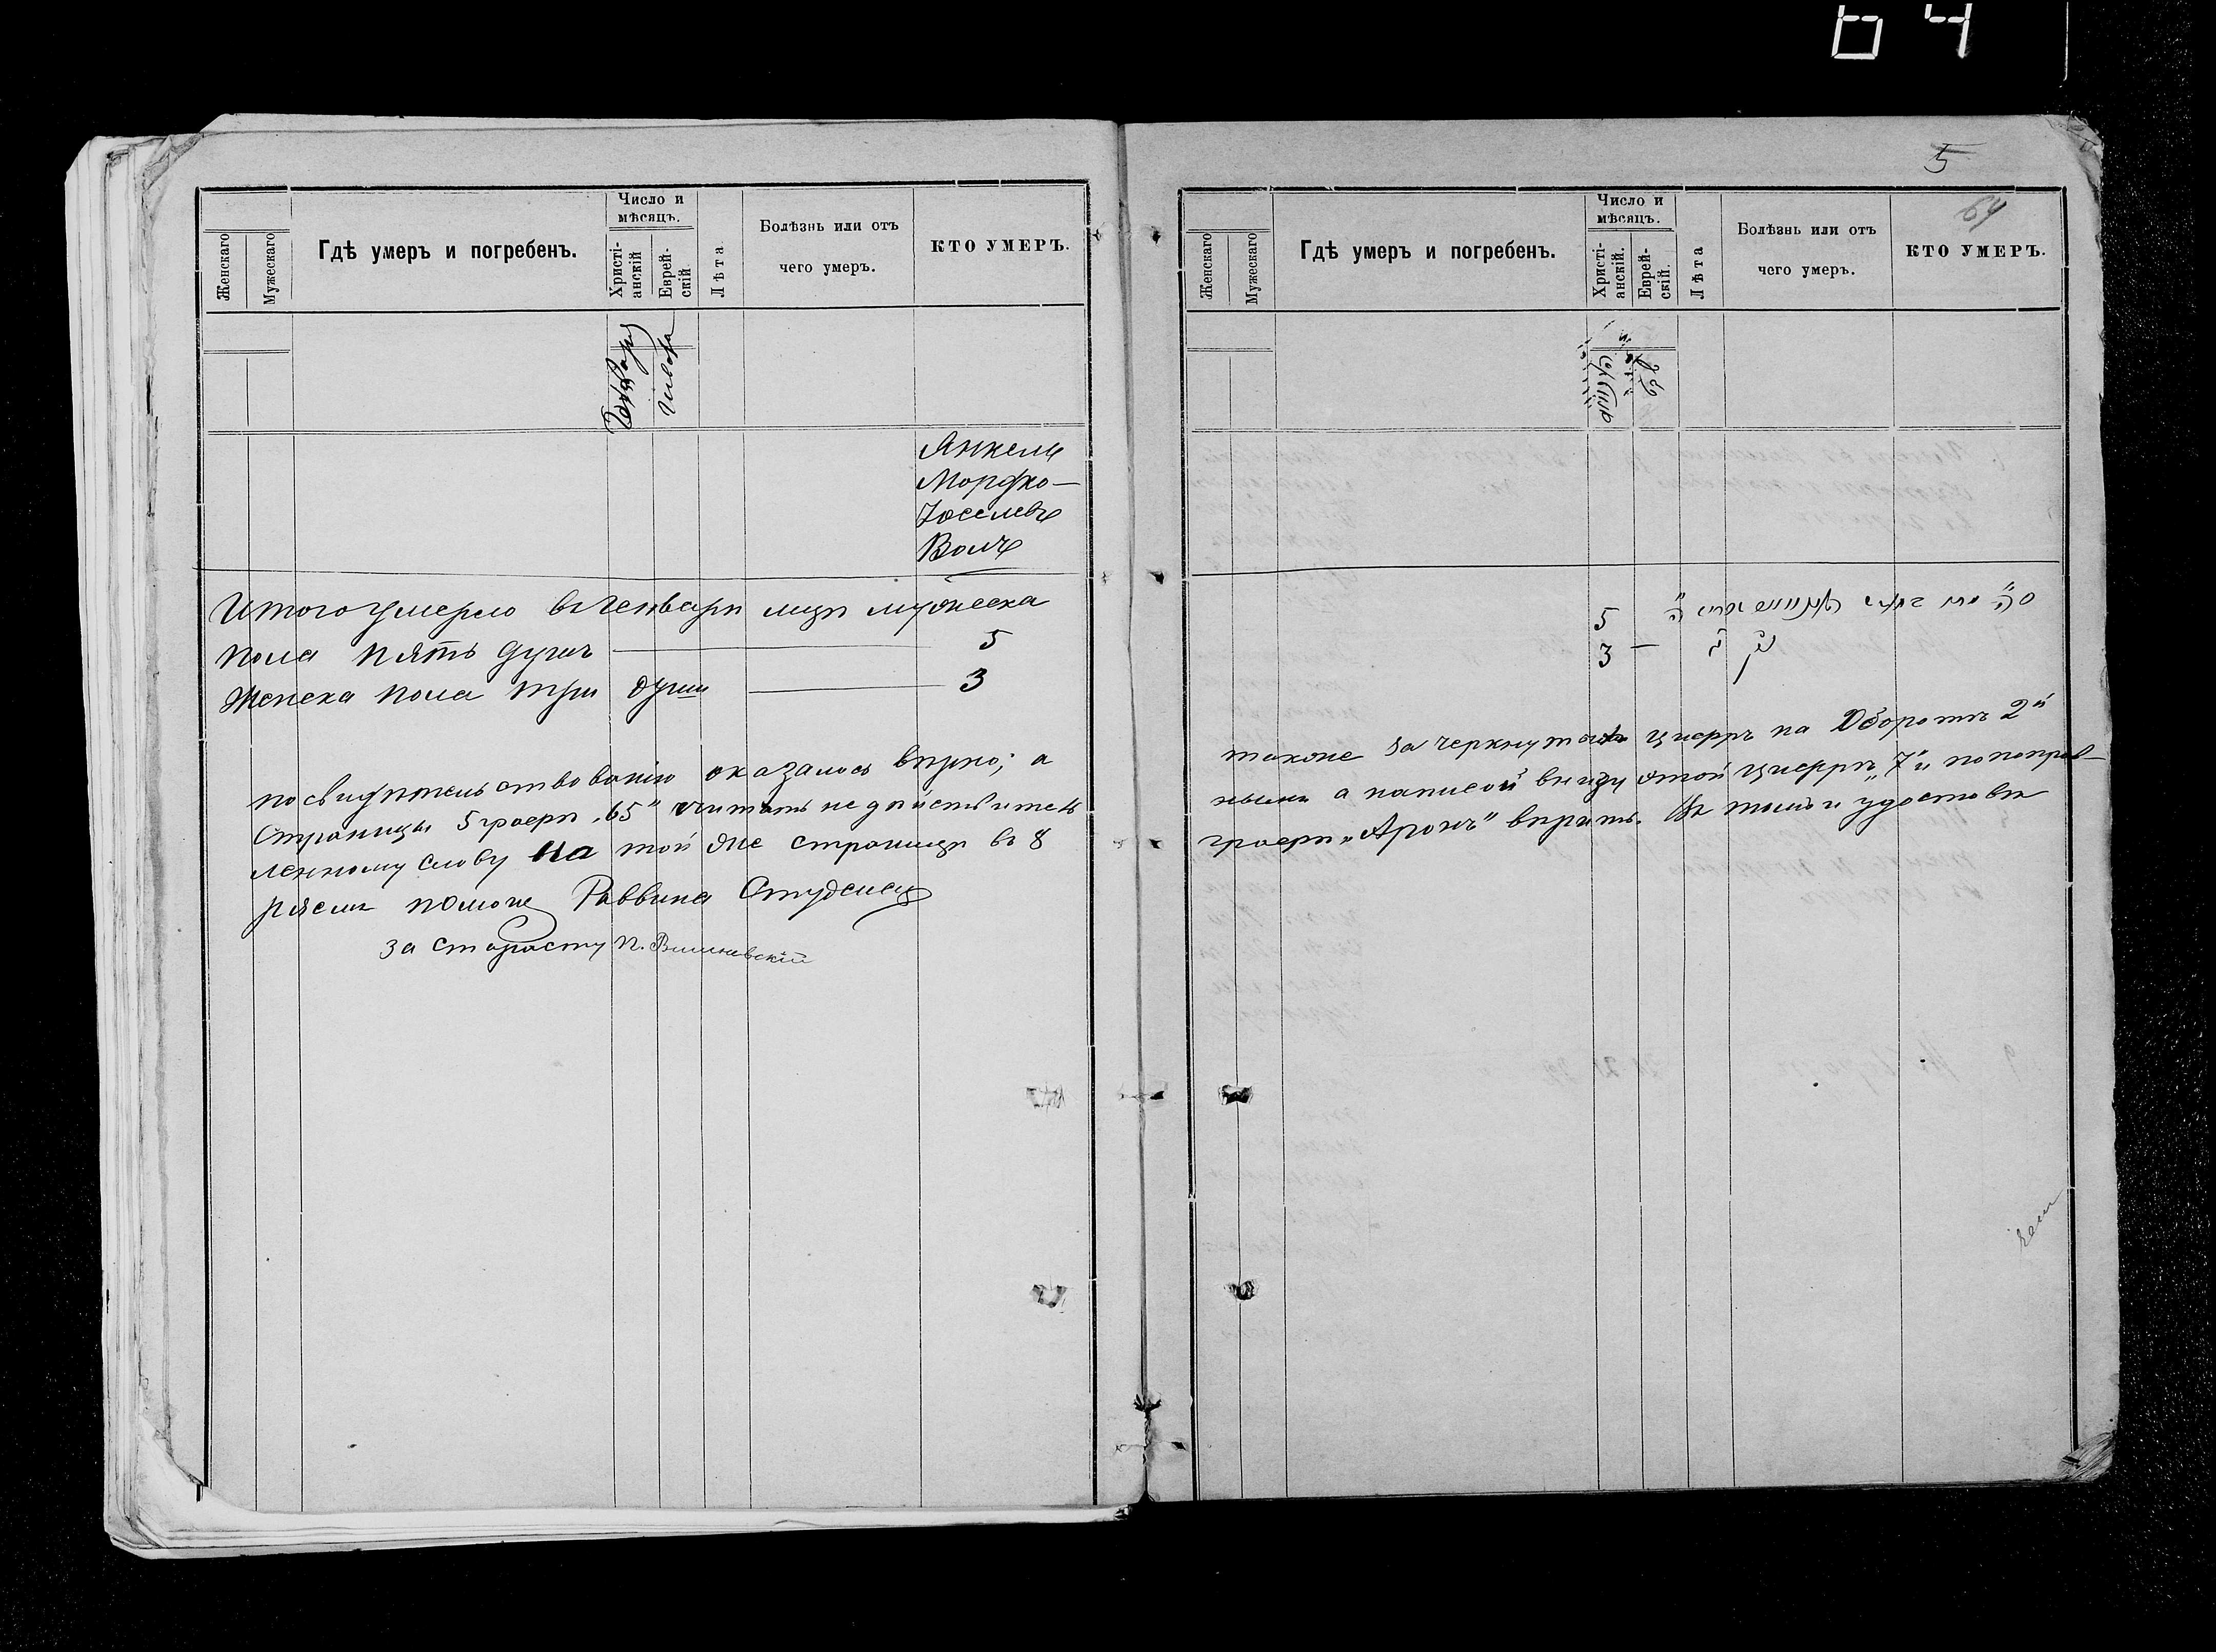 64
Женскаго
Мужескаго
Гдѣ умеръ и погребенъ.
Число и мѣсяцъ.
Христіанскій
Еврейскій
Лѣта
Болѣзнь или отъ чего умеръ.
КТО УМЕРЪ.
Генваря
Шевота
Янкель
Мордко-
Іоселевъ
Волч
Итого умерло въ Генварѣ мцѣ мужеска
пола пять душъ — 5
женска пола три души — 3
по свидѣтельствованію оказалось вѣрно; а
страницы 5 графѣ „65" считать недѣйствитель
ленному слову на той же страницѣ въ 8
ряемъ помощ Раввина Студенец
за старосту П. Вишневскій
5
64
Женскаго
Мужескаго
Гдѣ умеръ и погребенъ.
Число и мѣсяцъ.
Христіанскій.
Еврейскій.
Лѣта
Болѣзнь или отъ чего умеръ.
КТО УМЕРЪ.
5
3 —
также зачеркнутой цифрѣ на Оборотѣ 2й
ными а написан внизу этой цифрѣ „7" и по поправ-
графѣ „Аронъ" вѣрить. Въ томъ и удостовѣ